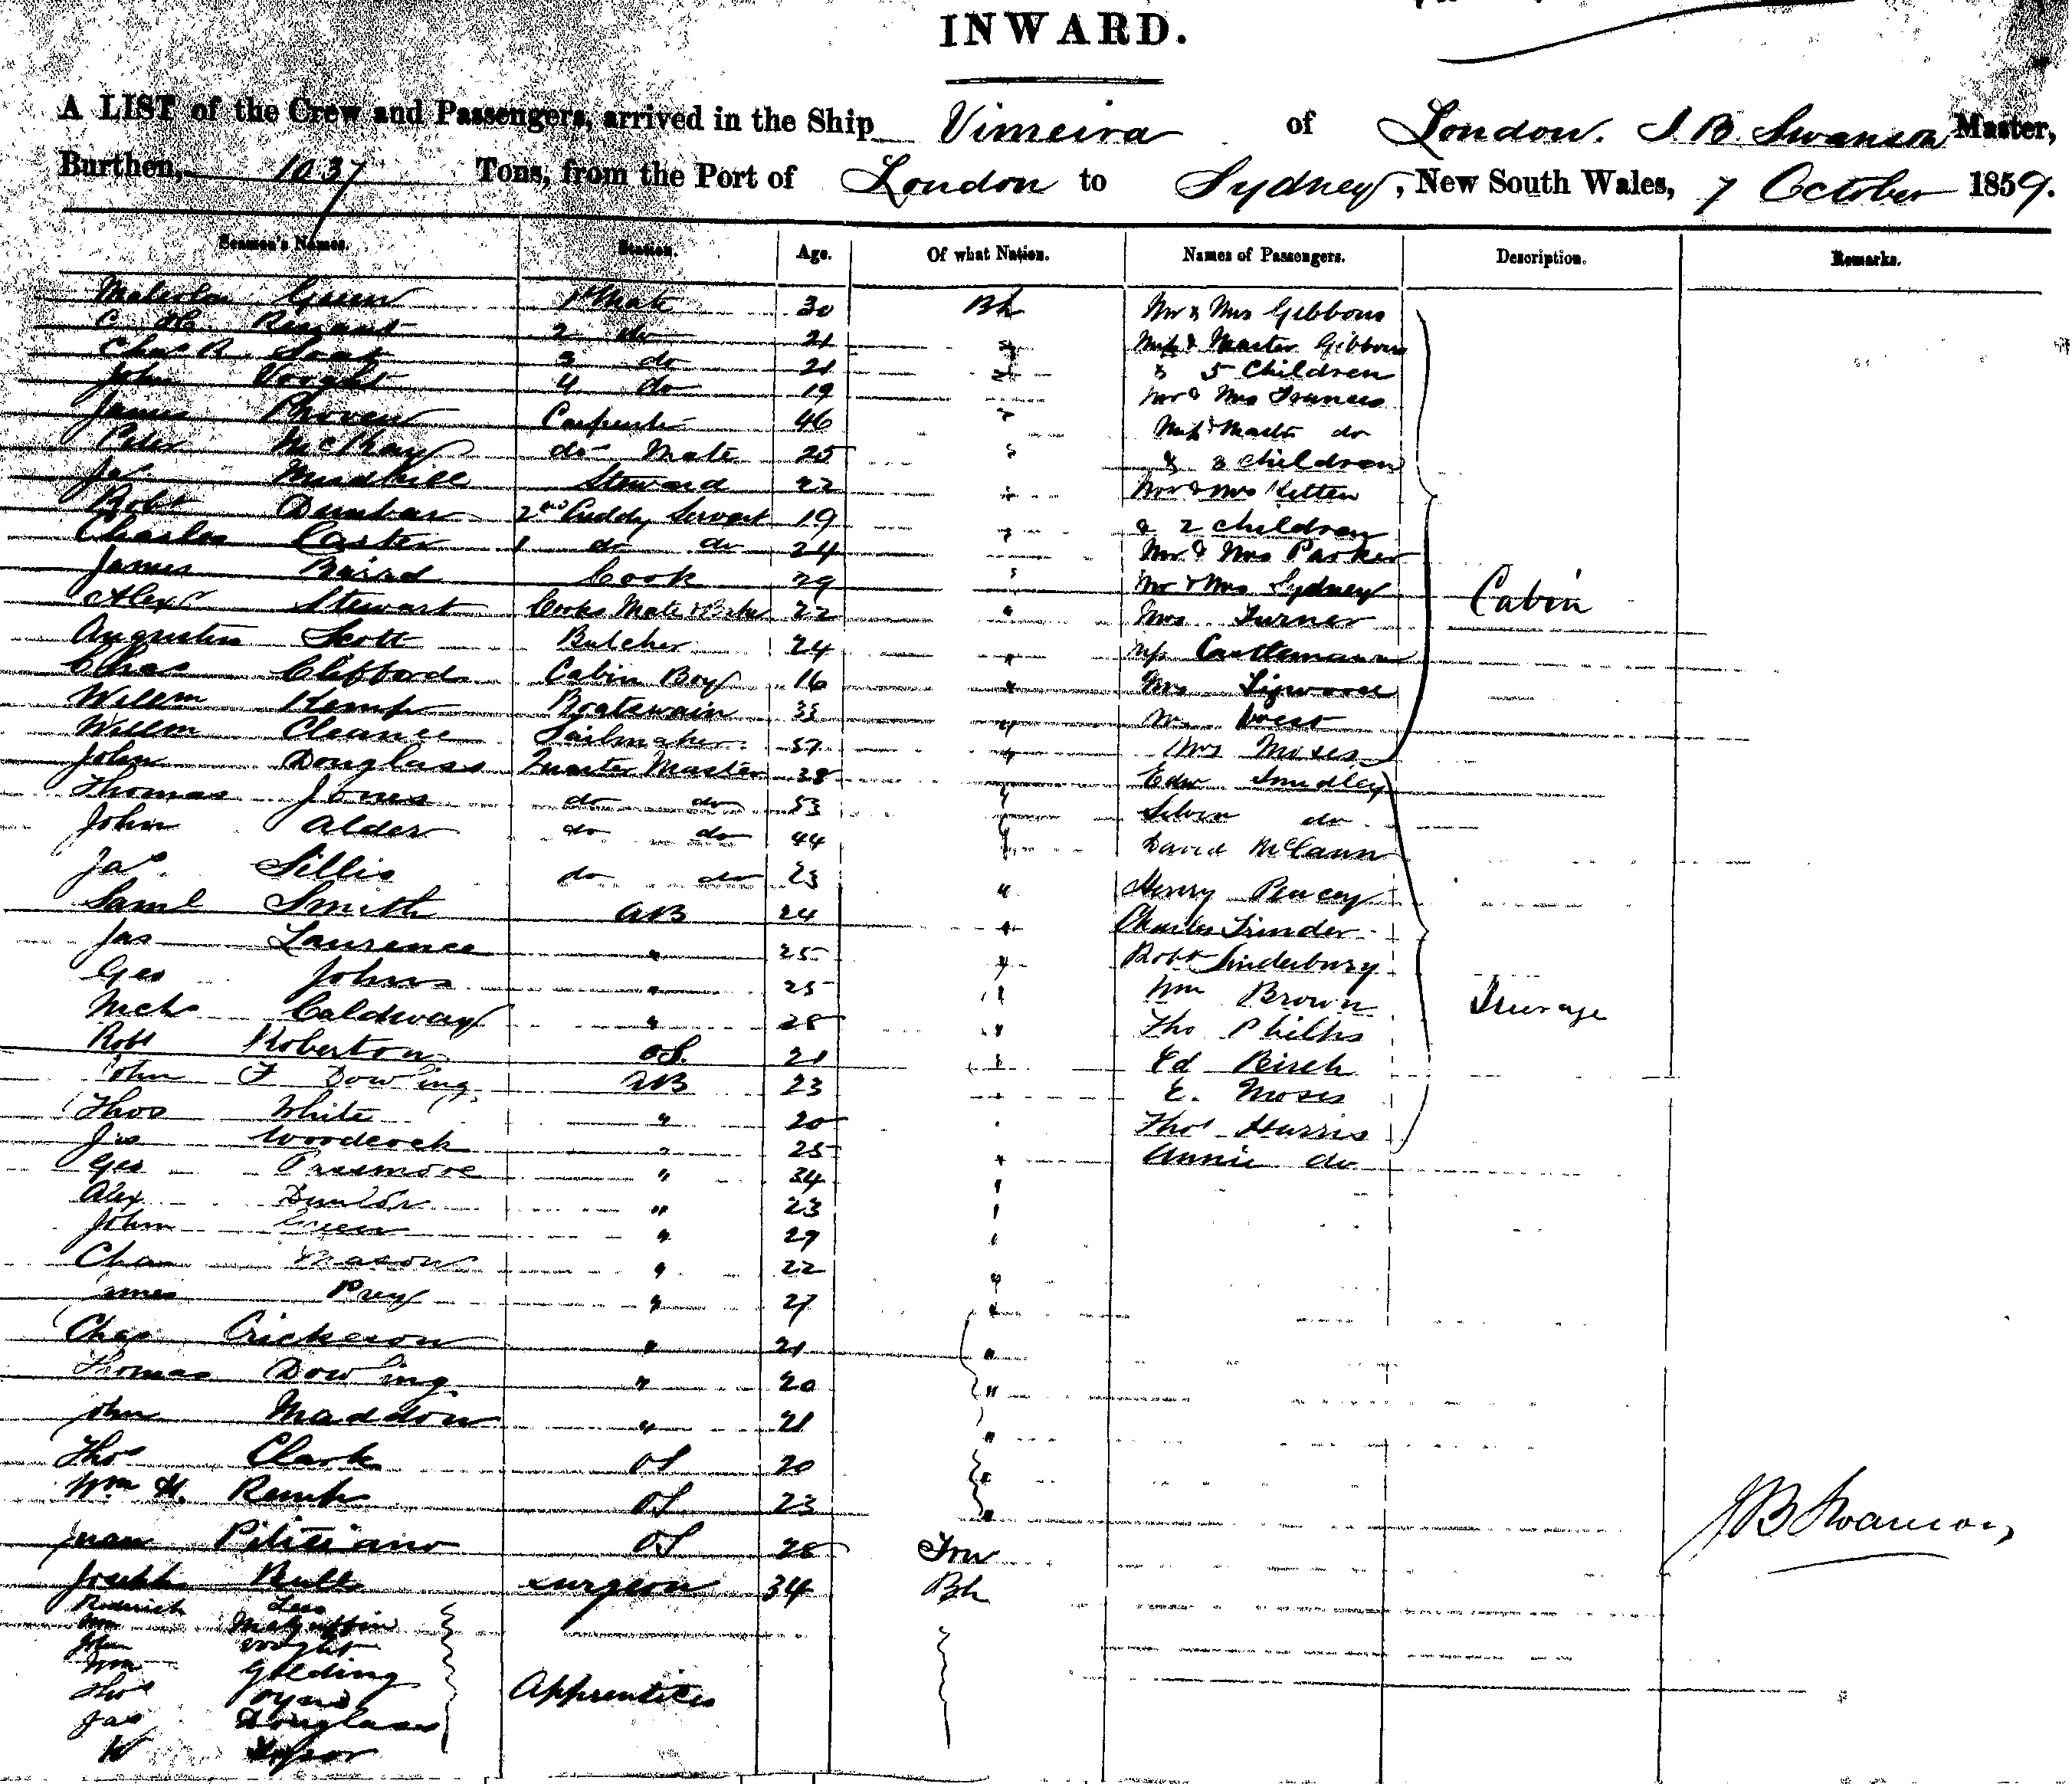 INWARD.
A LIST of the Crew and Passengers, arrived in the Ship Vimeira of London. J. B. Swanson Master,
Burthen, 1037 Tons, from the Port of London to Sydney, New South Wales, 7 October 1859.
Seamen's Names. Station. Age. Of what Nation. Names of Passengers. Description. Remarks.
Malcolm Green 1st Mate 30 Bh Mr & Mrs Gibbons
C 2 do 21 " Miss & Master Gibbons
Chas R. 3 do 21 " & 5 Children
John Voight 4 do 19 Mr & Mrs Frances
James Carpenter 46 " Miss & Master do
Peter McKay do Mate 25 " & 3 children
Jas Steward 22 " Mr & Mrs
Robt Dunbar 2nd Cuddy Servant 19 " & 2 children
Charles Carter 1 do do 24 Mr & Mrs Parker
James Baird Cook 29 " Mr & Mrs Sydney Cabin
Alexr Stewart Cooks Mate & 22 " Mrs Turner
Augustus Scott Butcher 24 " Miss Castlemaine
Chas Clifford Cabin Boy 16 " Mrs
Willm Kemp Boatswain 33 " West
Willm Cleance Sailmaker 57 " Mrs Moses
John Douglass Quarter Master 38 " Edw Smedley
Thomas Jones do do 53 " do
John Alder do do 44 " David McCann
Jas Sillis do do 23 " Henry Pracey
Saml Smith AB 24 " Charles Trinder
Jas Laurence " 25 " Robt
Geo Johns " 25 " Wm Brown Steerage
Nich Caldway " 28 " Tho Philhs
Robt Roberton OS. 21 " Ed Birch
John F Dowling AB 23 " E. Moses
Thos White " 20 " Thos Harris
Jas Woodcock " 25 " Annie do
Geo Passmore " 34 "
Alex Dunlop " 23 "
John Green " 29 "
Chas Mason " 22 "
James Prey " 27 "
Chas Erickeson " 21 "
Thomas Dowling " 20 "
John Maddon " 21 "
Thos Clark OS 20 "
Wm H. OS 23 "
Juan OS 28
Joseph Butt Surgeon 34 Bh
Roderick Lees
Wm McGuffin
John Voight
Wm Golding
Thos Apprentices
Jas Douglass
W
J B Swanson